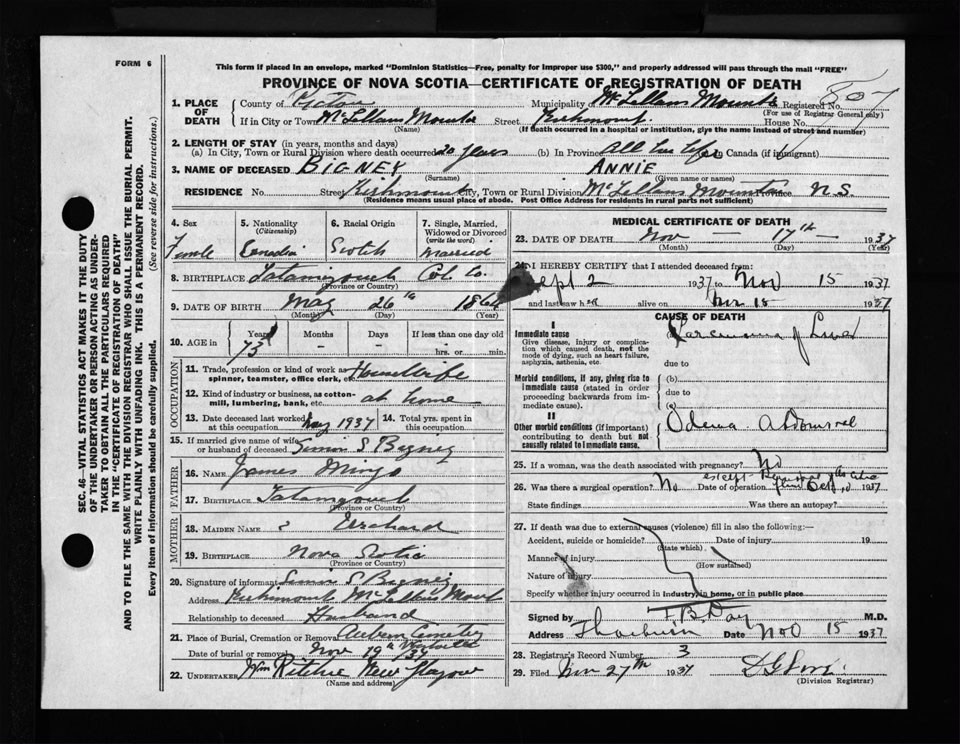 FORM 6
This form if placed in an envelope, marked "Dominion Statistics—Free, penalty for improper use $300," and properly addressed will pass through the mail "FREE"
PROVINCE OF NOVA SCOTIA—CERTIFICATE OF REGISTRATION OF DEATH
SEC. 46—VITAL STATISTICS ACT MAKES IT THE DUTY
OF THE UNDERTAKER OR PERSON ACTING AS UNDER-
TAKER TO OBTAIN ALL THE PARTICULARS REQUIRED
IN THE "CERTIFICATE OF REGISTRATION OF DEATH"
AND TO FILE THE SAME WITH THE DIVISION REGISTRAR WHO SHALL ISSUE THE BURIAL PERMIT.
WRITE PLAINLY WITH UNFADING INK. THIS IS A PERMANENT RECORD.
Every item of information should be carefully supplied. (See reverse side for instructions.)
1. PLACE OF DEATH County of Pictou Municipality of McLellans Mount Registered No. 807
(For use of Registrar General only)
If in City or Town McLellans Mount Street Kirkmount House No.
(Name) (If death occurred in a hospital or institution, give the name instead of street and number)
2. LENGTH OF STAY (in years, months and days)
(a) In City, Town or Rural Division where death occurred 20 years (b) In Province All her life In Canada (if immigrant)
3. NAME OF DECEASED BIGNEY ANNIE
(Surname) (Given name or names)
RESIDENCE No. Street Kirkmount City, Town or Rural Division McLellans Mountain Province N.S.
(Residence means usual place of abode. Post Office Address for residents in rural parts not sufficient)
4. Sex Female
5. Nationality (Citizenship) Canadian
6. Racial Origin Scotch
7. Single, Married, Widowed or Divorced (write the word) Married
8. BIRTHPLACE Tatamagouch Col. Co.
(Province or Country)
9. DATE OF BIRTH May 26th 1864
(Month) (Day) (Year)
10. AGE in Years Months Days If less than one day old
73 – – hrs. or min.
OCCUPATION
11. Trade, profession or kind of work as spinner, teamster, office clerk, etc. Housewife
12. Kind of industry or business, as cotton-mill, lumbering, bank, etc. at home
13. Date deceased last worked at this occupation May 1937 14. Total yrs. spent in this occupation
15. If married give name of wife or husband of deceased Simon S Bigney
FATHER
16. NAME James Mingo
17. BIRTHPLACE Tatamagouch
(Province or Country)
MOTHER
18. MAIDEN NAME ?
19. BIRTHPLACE Nova Scotia
(Province or Country)
20. Signature of informant Simon S Bigney
Address Kirkmount McLellans Mount
Relationship to deceased Husband
21. Place of Burial, Cremation or Removal Auburn Cemetery
Date of burial or removal Nov 19th /37
22. UNDERTAKER Wm Ritchie New Glasgow
(Name and address)
MEDICAL CERTIFICATE OF DEATH
23. DATE OF DEATH Nov — 17th 1937
(Month) (Day) (Year)
24. I HEREBY CERTIFY that I attended deceased from:
Sept 2 1937 to Nov 15 1937
and last saw her alive on Nov 15 1937
CAUSE OF DEATH
I
Immediate cause Carcinoma of Liver
Give disease, injury or complication which caused death, not the mode of dying, such as heart failure, asphyxia, asthenia, etc.
due to
Morbid conditions, if any, giving rise to immediate cause (stated in order proceeding backwards from immediate cause).
(b)
due to
(c)
II
Other morbid conditions (if important) contributing to death but not causally related to immediate cause.
Odema Abdominal
25. If a woman, was the death associated with pregnancy? No
26. Was there a surgical operation? No Date of operation Oct 10 1937
except
State findings Was there an autopsy?
27. If death was due to external causes (violence) fill in also the following:—
Accident, suicide or homicide? Date of injury 19
(State which)
Manner of injury
(How sustained)
Nature of injury
Specify whether injury occurred in Industry, in home, or in public place
Signed by T.B. Day M.D.
Address Thorburn Date Nov 15 1937
28. Registrar's Record Number 3
29. Filed Nov 27th 1937
(Division Registrar)